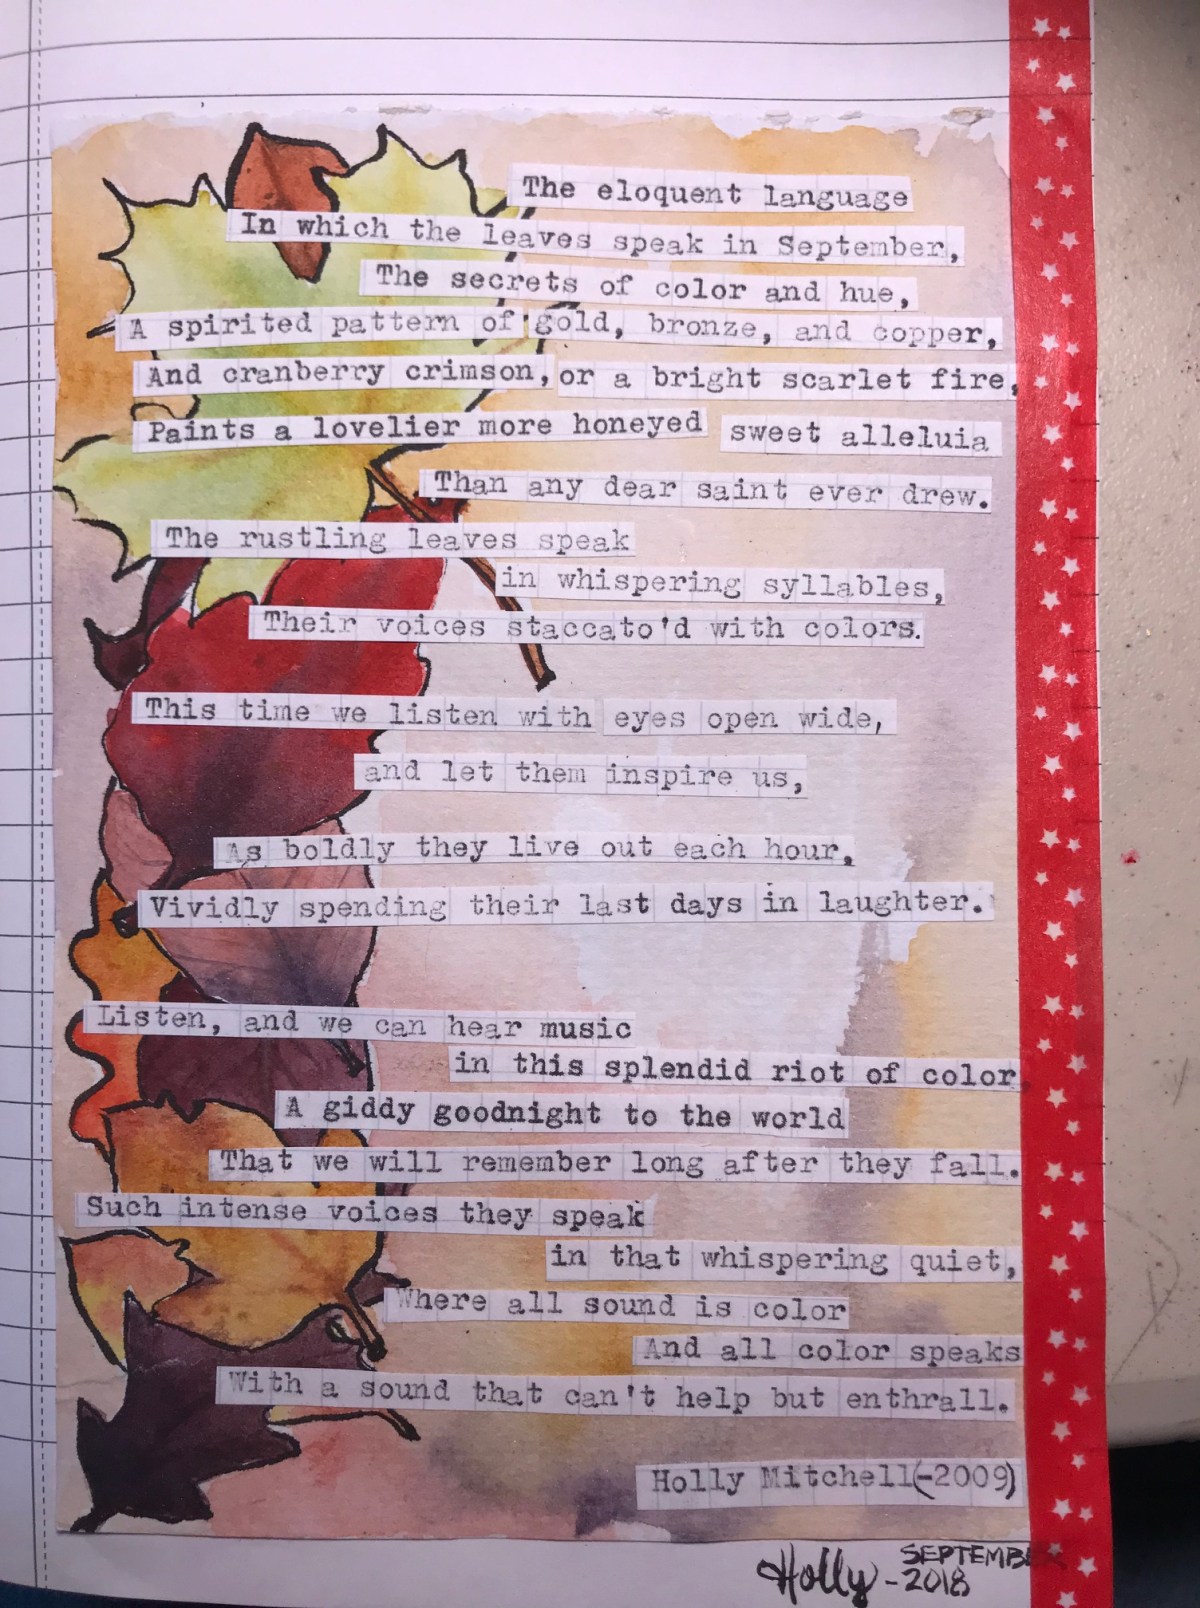 The eloquent language
In which the leaves speak in September,
The secrets of color and hue,
A spirited pattern of gold, bronze, and copper,
And cranberry crimson, or a bright scarlet fire,
Paints a lovelier more honeyed sweet alleluia
Than any dear saint ever drew.
The rustling leaves speak
in whispering syllables,
Their voices staccato'd with colors.
This time we listen with eyes open wide,
and let them inspire us,
As boldly they live out each hour,
Vividly spending their last days in laughter.
Listen, and we can hear music
in this splendid riot of color,
A giddy goodnight to the world
That we will remember long after they fall.
Such intense voices they speak
in that whispering quiet,
Where all sound is color
And all color speaks
With a sound that can't help but enthrall.
Holly Mitchell (-2009)
Holly SEPTEMBER
-2018